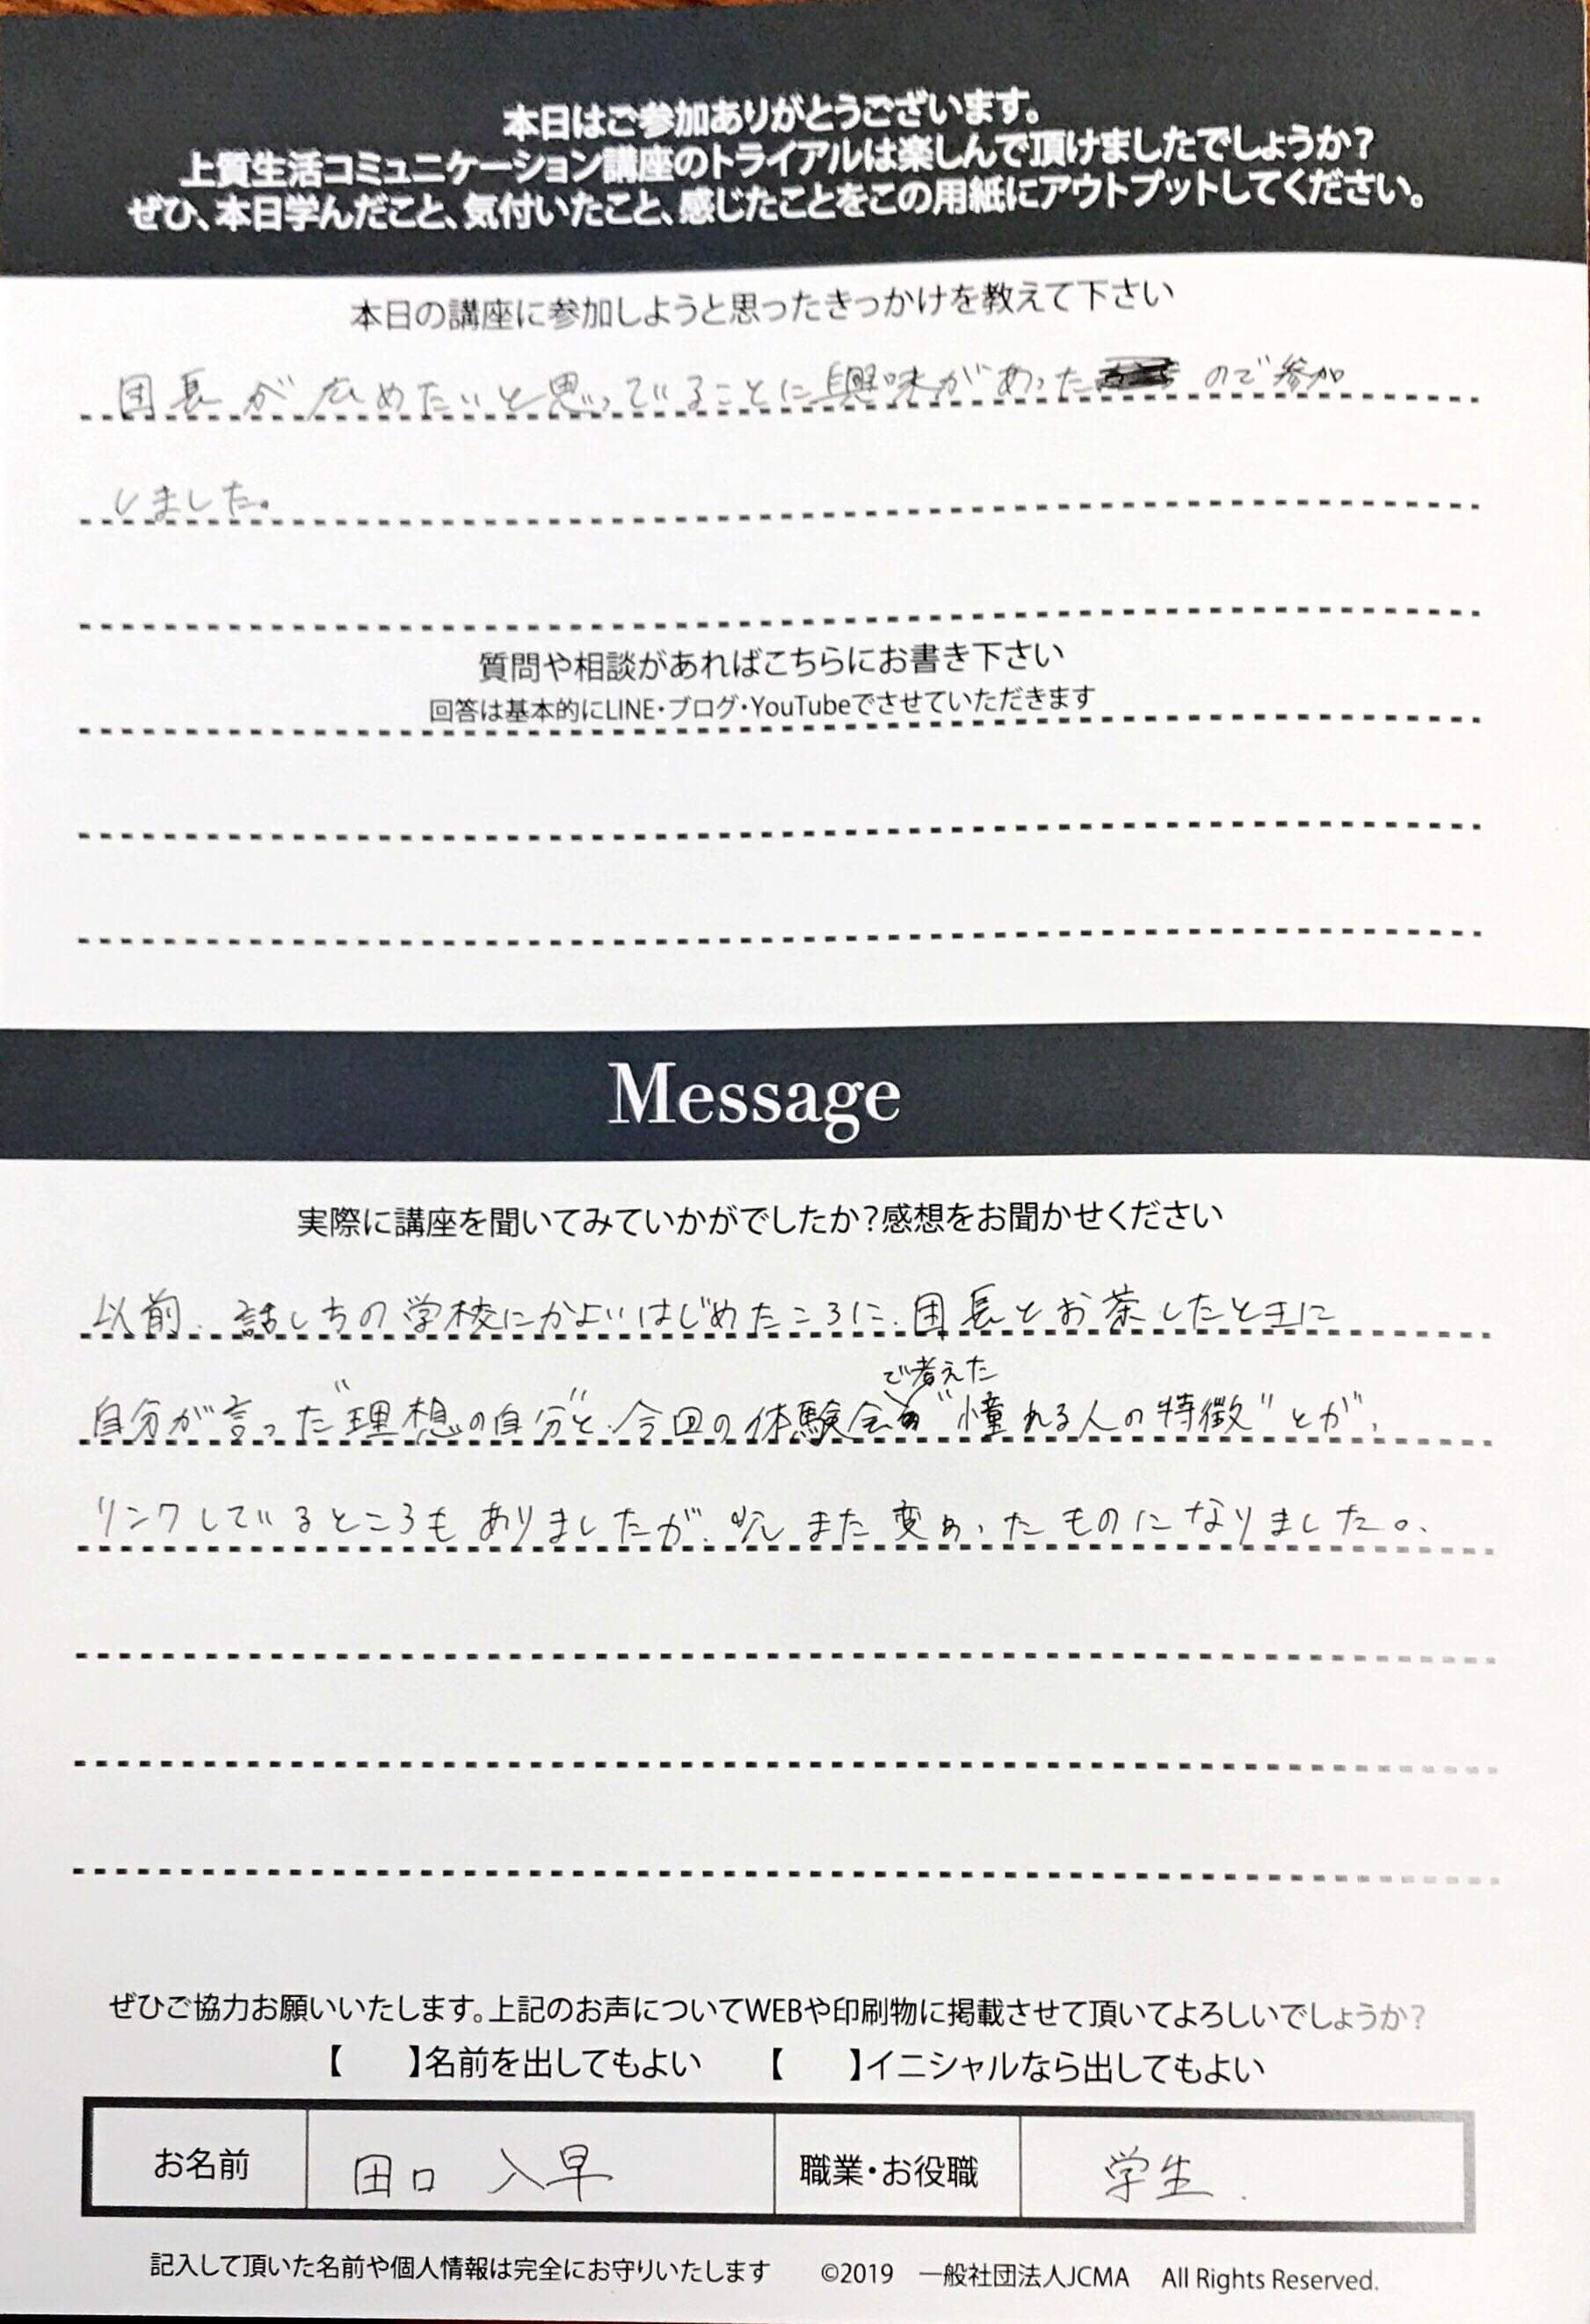 本日はご参加ありがとうございます。
上質生活コミュニケーション講座のトライアルは楽しんで頂けましたでしょうか？
ぜひ、本日学んだこと、気付いたこと、感じたことをこの用紙にアウトプットしてください。
本日の講座に参加しようと思ったきっかけを教えて下さい
団長が広めたいと思っていることに興味があったので参加
しました。
質問や相談があればこちらにお書き下さい
回答は基本的にLINE・ブログ・YouTubeでさせていただきます
Message
実際に講座を聞いてみていかがでしたか？感想をお聞かせください
以前、話しちの学校にかよいはじめたころに、団長とお茶したときに
自分が言った"理想の自分"と、今回の体験会で考えた"憧れる人の特徴"とが、
リンクしているところもありましたが、少しまた変わったものになりました。
ぜひご協力お願いいたします。上記のお声についてWEBや印刷物に掲載させて頂いてよろしいでしょうか？
【　】名前を出してもよい　【　】イニシャルなら出してもよい
お名前　田口 入早　職業・お役職　学生.
記入して頂いた名前や個人情報は完全にお守りいたします　©2019　一般社団法人JCMA　All Rights Reserved.